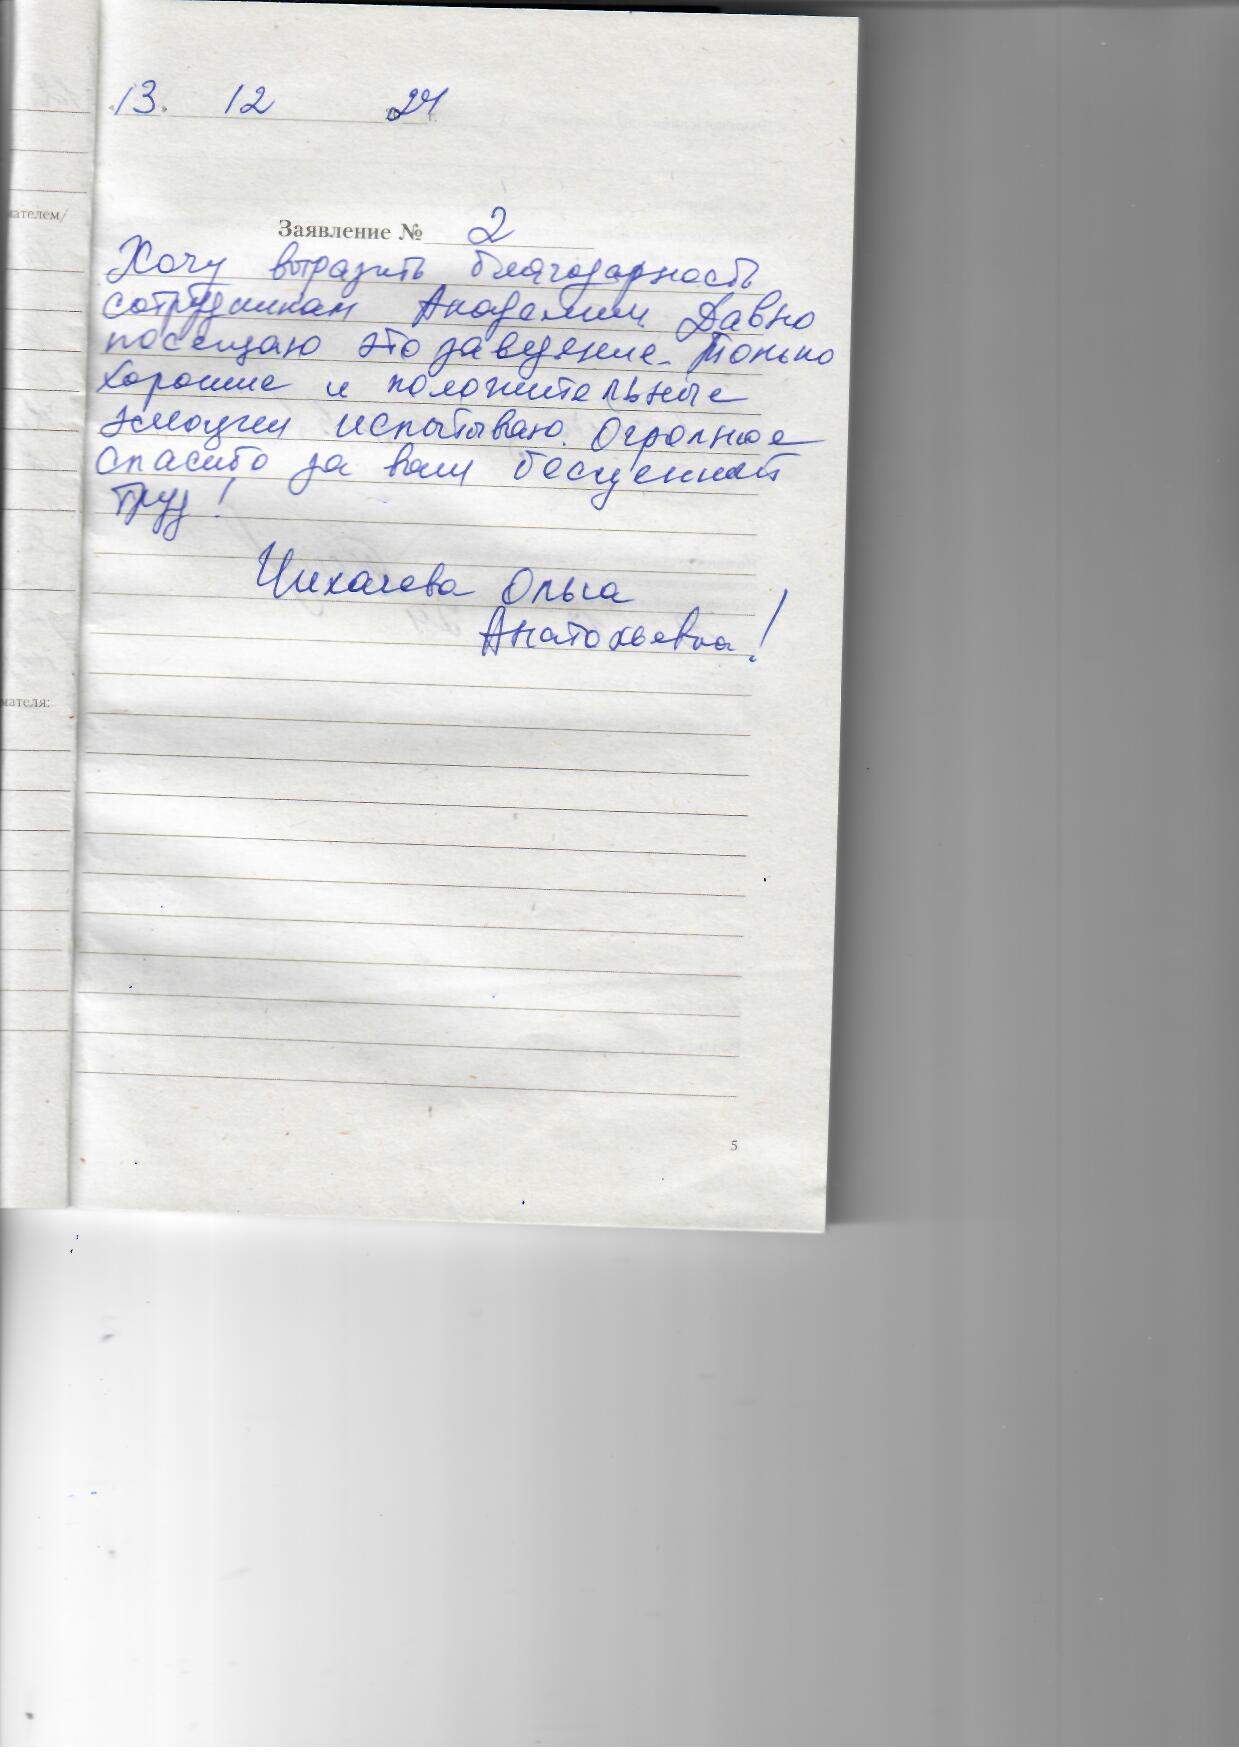 13. 12 2024 г.
мателем/
Заявление № 2
Хочу выразить благодарность
сотрудникам Академии. Давно
посещаю это заведение. Только
хорошие и положительные
эмоции испытываю. Огромное
спасибо за ваш бесценный
труд!
Чихачева Ольга
Анатольевна!
мателя:
5